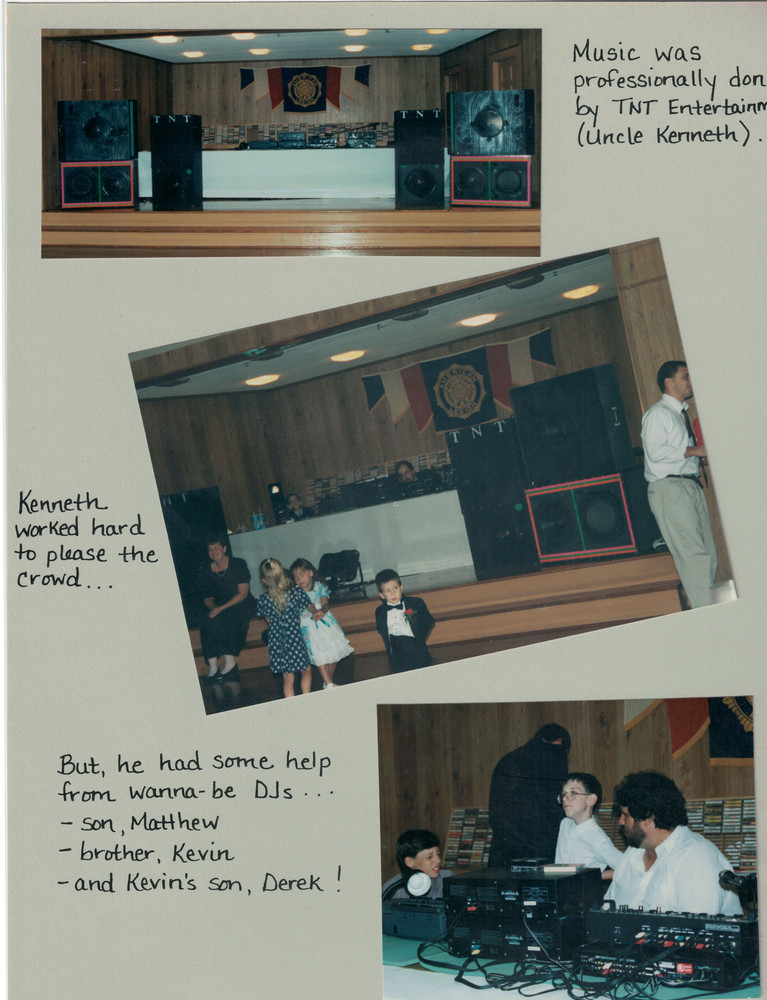 Music was
professionally don
by TNT Entertainm
(Uncle Kenneth).
TNT
TNT
AMERICAN
LEGION
TNT
Kenneth
worked hard
to please the
crowd...
But, he had some help
from wanna-be DJs ...
- son, Matthew
- brother, Kevin
- and Kevin's son, Derek!